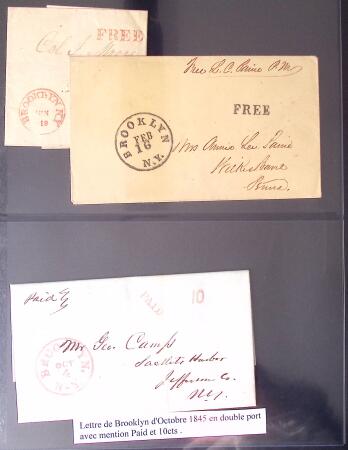 FREE
Col. J. Moore
BROOKLYN N.Y.
JUN
19
Free P.M.
FREE
BROOKLYN
FEB
16
N.Y.
Miss Annie Lee Paine
Wilkes Barre
Penna.
Paid
PAID
10
BROOKLYN
OCT
2
N.Y.
Mr Geo. Camp
Sackets Harbor
Jefferson Co.
N.Y.
Lettre de Brooklyn d'Octobre 1845 en double port
avec mention Paid et 10cts .